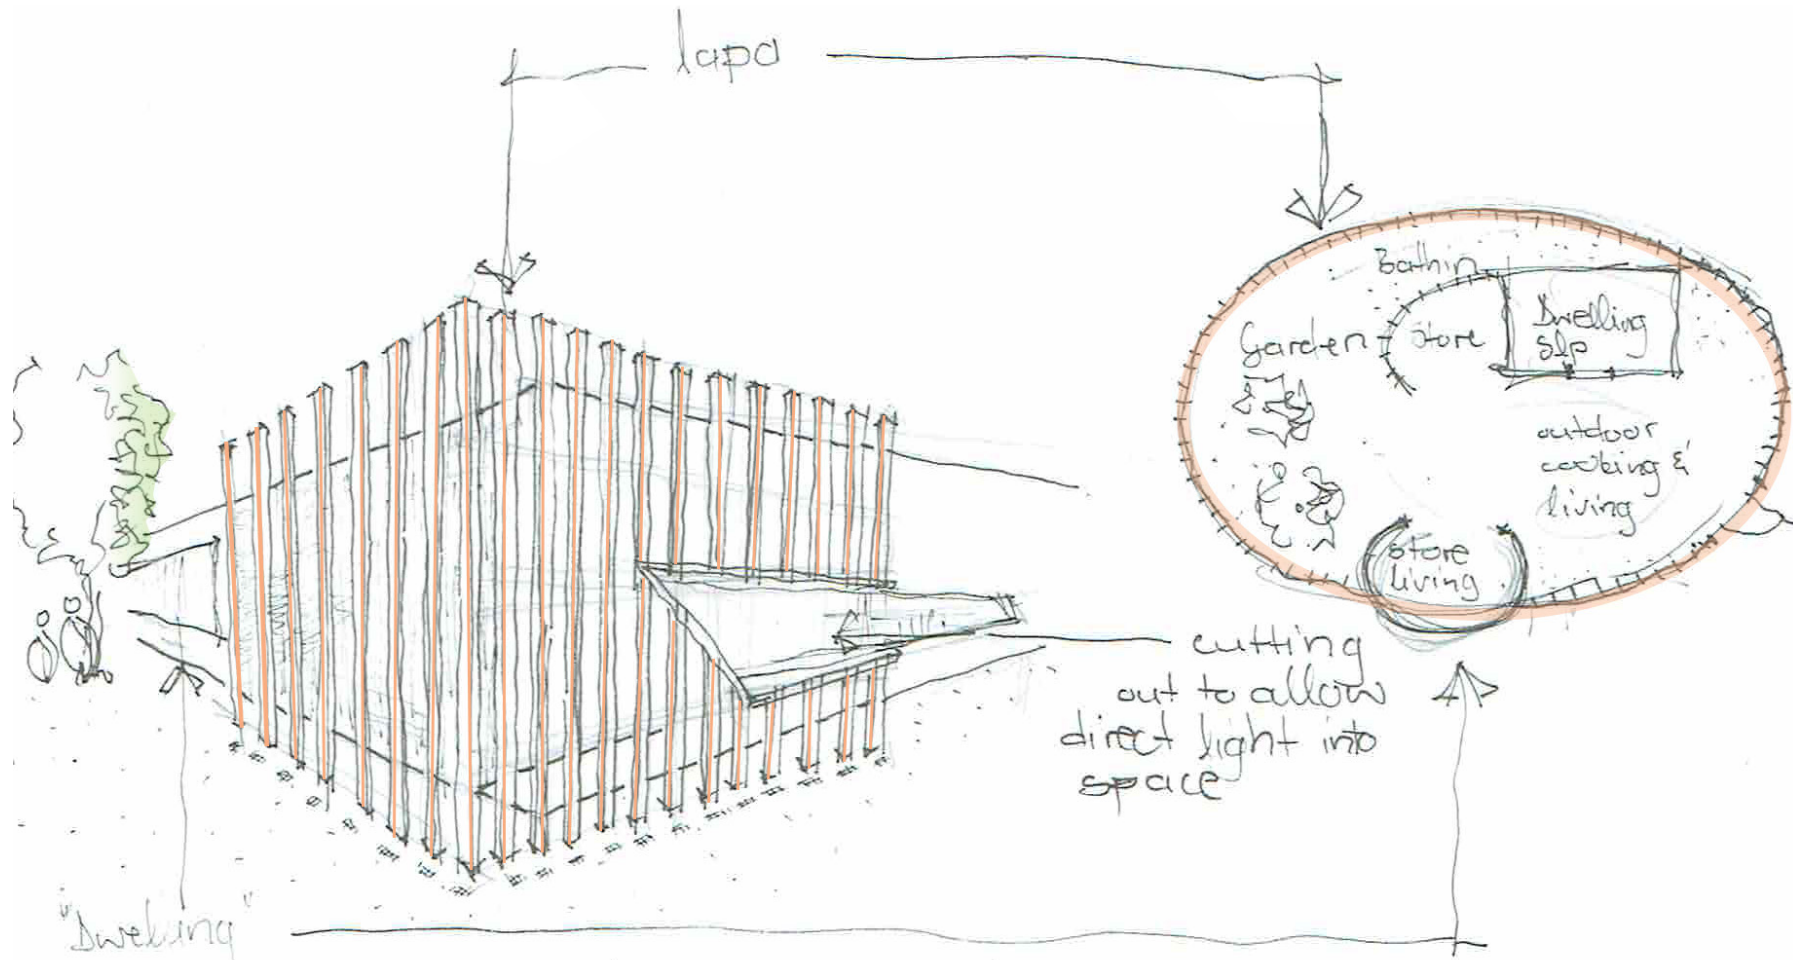 lapa
Bathin
Garden
Store
Dwelling
Slp
outdoor
cooking &
living
Store
living
cutting
out to allow
direct light into
space
"Dwelling"